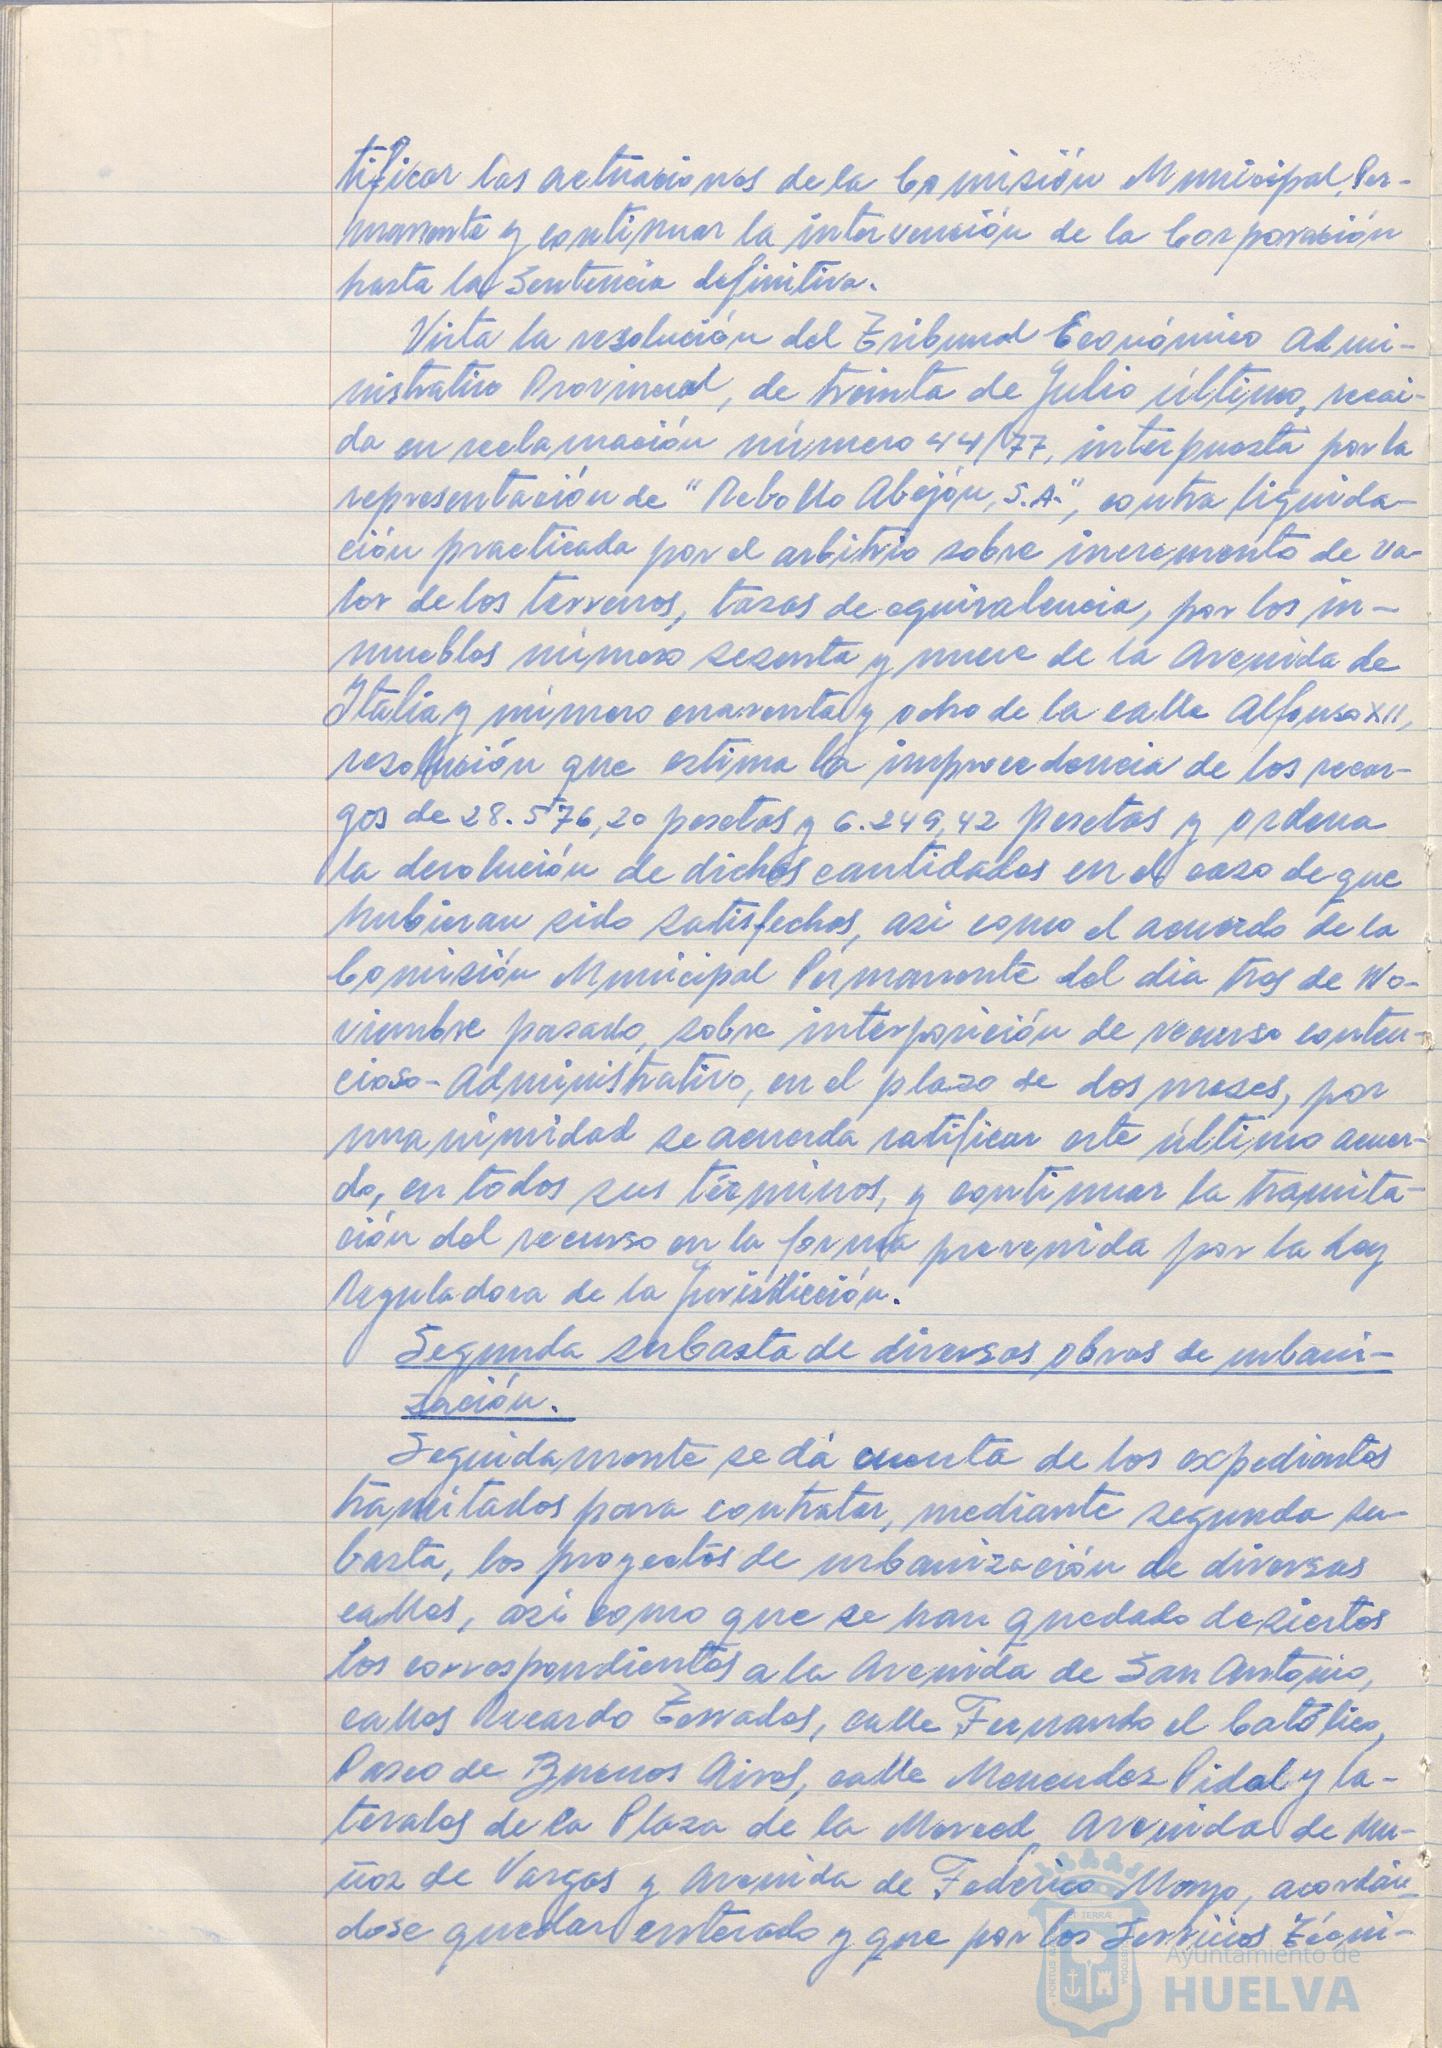 tificar las actuaciones de la Comisión Municipal Per-
manente y continuar la intervención de la Corporación
hasta la Sentencia definitiva.
Vista la resolución del Tribunal Económico Admi-
nistrativo Provincial, de treinta de Julio último, recaí-
da en reclamación número 44/77, interpuesta por la
representación de "Rebollo Abejón, S.A.", contra liquida-
ción practicada por el arbitrio sobre incremento de va-
lor de los terrenos, tasas de equivalencia, por los in-
muebles número sesenta y nueve de la Avenida de
Italia y número cuarenta y ocho de la calle Alfonso XII,
resolución que estima la improcedencia de los recar-
gos de 28.576,20 pesetas y 6.249,42 pesetas y ordena
la devolución de dichas cantidades en el caso de que
hubieran sido satisfechas, asi como el acuerdo de la
Comisión Municipal Permanente del dia tres de No-
viembre pasado, sobre interposición de recurso conten-
cioso-Administrativo, en el plazo de dos meses, por
unanimidad se acuerda ratificar este último acuer-
do, en todos sus términos, y continuar la tramita-
ción del recurso en la forma prevenida por la Ley
Reguladora de la Jurisdicción.
Segunda subasta de diversas obras de urbani-
zación.
Seguidamente se dá cuenta de los expedientes
tramitados para contratar, mediante segunda su-
basta, los proyectos de urbanización de diversas
calles, asi como que se han quedado desiertos
los correspondientes a la Avenida de San Antonio,
calles Ricardo Terrades, calle Fernando el Católico,
Paseo de Buenos Aires, calle Menendez Pidal y la-
terales de la Plaza de la Merced, Avenida de Mu-
ñoz de Vargas y Avenida de Federico Mayo, acordán-
dose quedar enterado y que por los Servicios Técni-
PORTUS TERRAE CUSTODIA
Ayuntamiento de
HUELVA